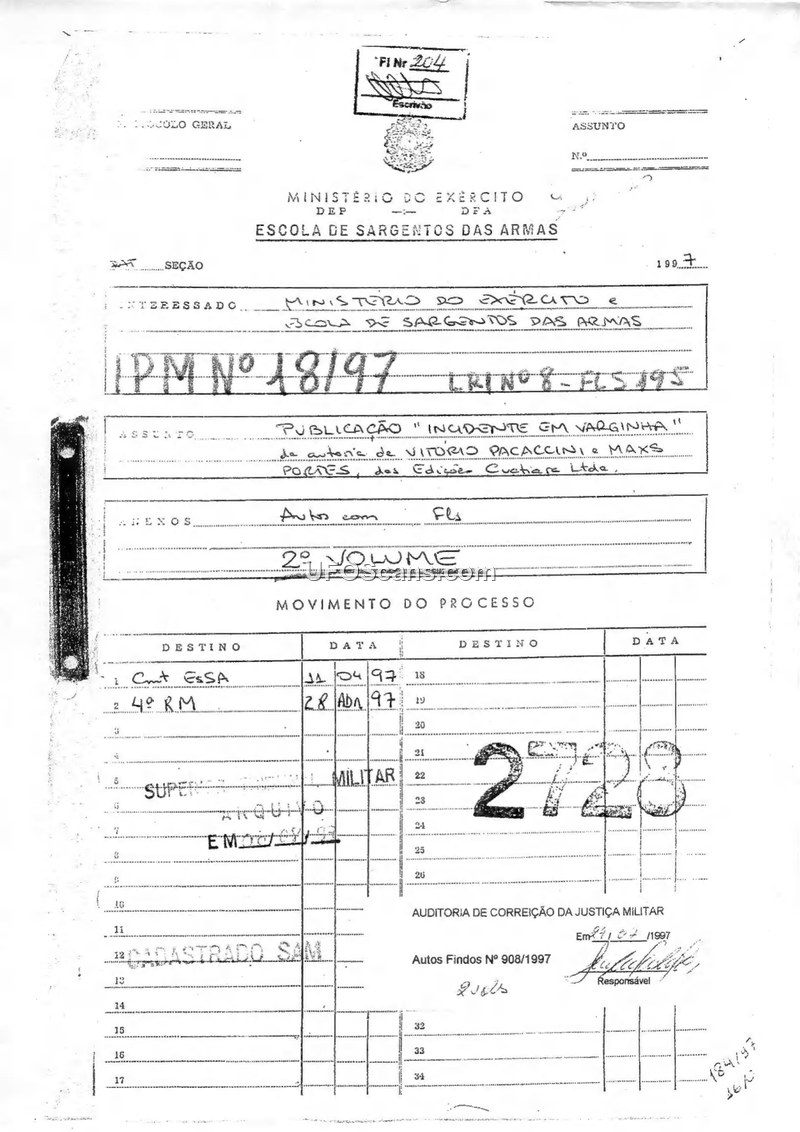 Fl Nr 204
Escrivão
GERAL
ASSUNTO
N.º
MINISTÉRIO DO EXÉRCITO
DEP —:— DFA
ESCOLA DE SARGENTOS DAS ARMAS
SEÇÃO
1997
INTERESSADO MINISTÉRIO DO EXÉRCITO e
ESCOLA DE SARGENTOS DAS ARMAS
IPM Nº 18/97 LRI Nº 8 - FLS 195
ASSUNTO PUBLICAÇÃO "INCIDENTE EM VARGINHA"
de autoria de VITÓRIO PACACCINI e MAXS
PORTES, das Edições Cuatiara Ltda.
ANEXOS Autos com Fls
2º VOLUME
UFOScans.com
MOVIMENTO DO PROCESSO
DESTINO DATA DESTINO DATA
1 Cmt EsSA 11 04 97 18
2 4ª RM 28 Abr 97 19
3 20
4 21
5 22
6 23
7 24
8 25
9 26
SUPERIOR TRIBUNAL MILITAR
ARQUIVO
EM 08/08/97
2728
10
11
12
13
14
CADASTRADO SAM
AUDITORIA DE CORREIÇÃO DA JUSTIÇA MILITAR
Em /1997
Autos Findos Nº 908/1997
Responsável
2 vols
15 32
16 33
17 34
184/97